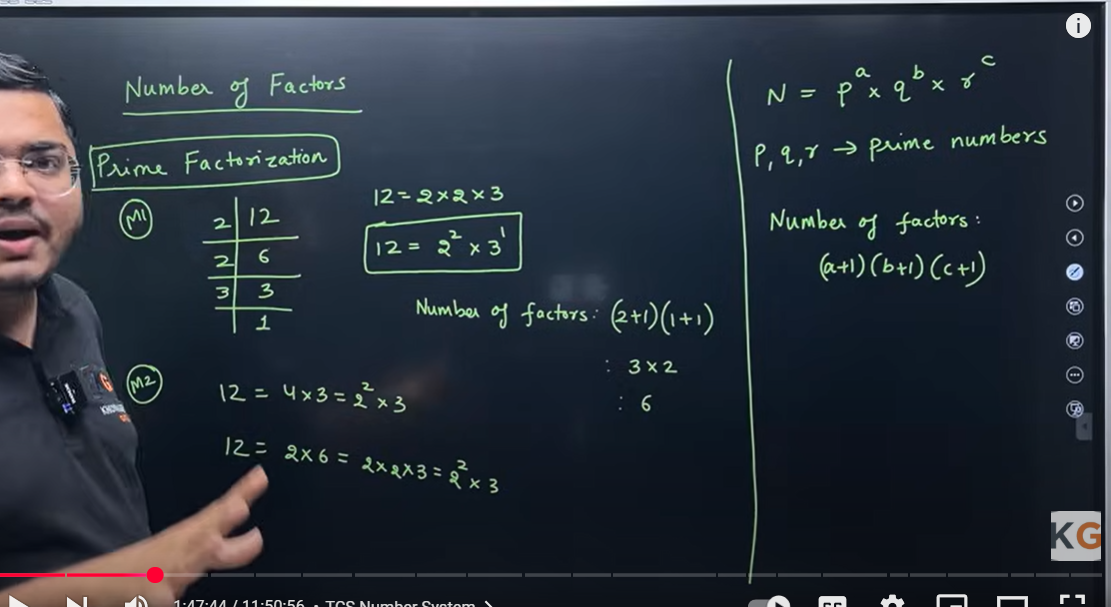 Number of Factors
Prime Factorization
M1
2 | 12
2 | 6
3 | 3
1
12 = 2 × 2 × 3
12 = 2² × 3¹
Number of factors: (2+1)(1+1)
: 3 × 2
: 6
M2
12 = 4 × 3 = 2² × 3
12 = 2 × 6 = 2 × 2 × 3 = 2² × 3
N = p^a × q^b × r^c
p, q, r → prime numbers
Number of factors:
(a+1)(b+1)(c+1)
KG
1:47:44 / 11:50:56 • TCS Number System >